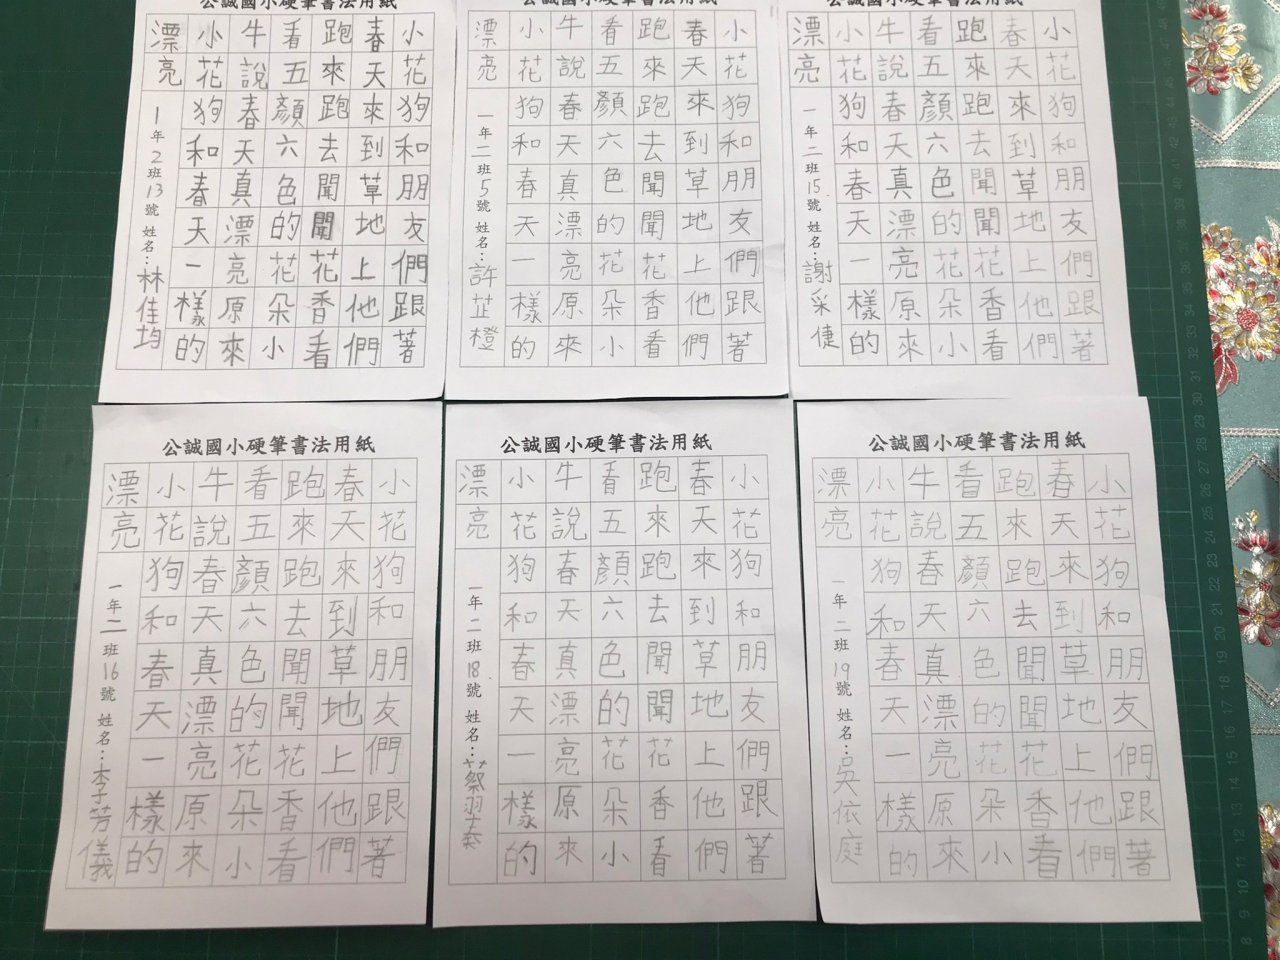 公誠國小硬筆書法用紙
小花狗和朋友們跟著
春天來到草地上他們
跑來跑去聞聞花香看
看五顏六色的花朵小
牛說春天真漂亮原來
小花狗和春天一樣的
漂亮
1年2班13號 姓名:林佳均
公誠國小硬筆書法用紙
小花狗和朋友們跟著
春天來到草地上他們
跑來跑去聞聞花香看
看五顏六色的花朵小
牛說春天真漂亮原來
小花狗和春天一樣的
漂亮
一年二班5號 姓名:許芷橙
公誠國小硬筆書法用紙
小花狗和朋友們跟著
春天來到草地上他們
跑來跑去聞聞花香看
看五顏六色的花朵小
牛說春天真漂亮原來
小花狗和春天一樣的
漂亮
一年二班15號 姓名:謝采倢
公誠國小硬筆書法用紙
小花狗和朋友們跟著
春天來到草地上他們
跑來跑去聞聞花香看
看五顏六色的花朵小
牛說春天真漂亮原來
小花狗和春天一樣的
漂亮
一年二班16號 姓名:李芳儀
公誠國小硬筆書法用紙
小花狗和朋友們跟著
春天來到草地上他們
跑來跑去聞聞花香看
看五顏六色的花朵小
牛說春天真漂亮原來
小花狗和春天一樣的
漂亮
一年二班18號 姓名:蔡
公誠國小硬筆書法用紙
小花狗和朋友們跟著
春天來到草地上他們
跑來跑去聞聞花香看
看五顏六色的花朵小
牛說春天真漂亮原來
小花狗和春天一樣的
漂亮
一年二班19號 姓名:吳依庭